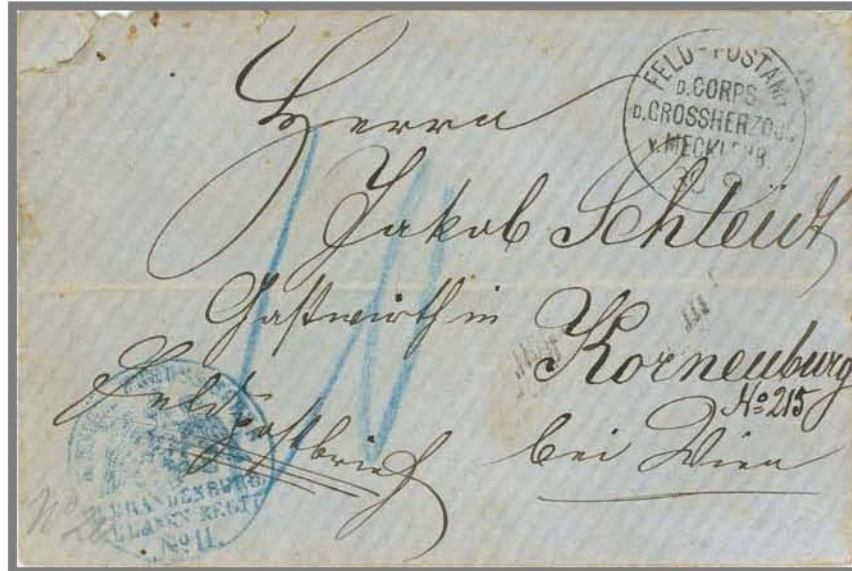 FELD-POSTAMT
D. CORPS
D. GROSSHERZOG
V. MECKLENB.
Herrn
Jakob Schleudt
Gastwirth in
Korneuburg
No 215
Feld
postbrief
bei Wien
BRANDENBURG.
ULANEN REGIT.
No 11.